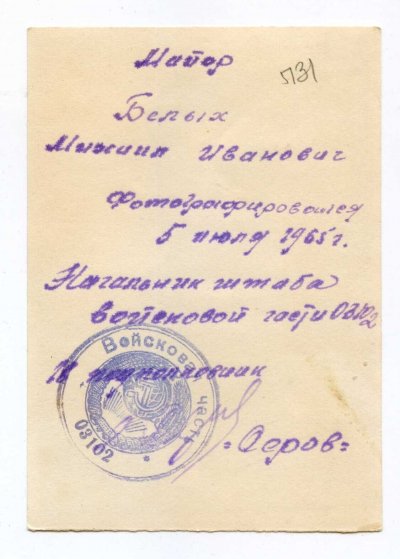 Майор
П31
Белых
Михаил Иванович
Фотографировался
5 июля 1965 г.
Начальник штаба
войсковой части 03102
подполковник
Войсковая часть
03102
=Серов=